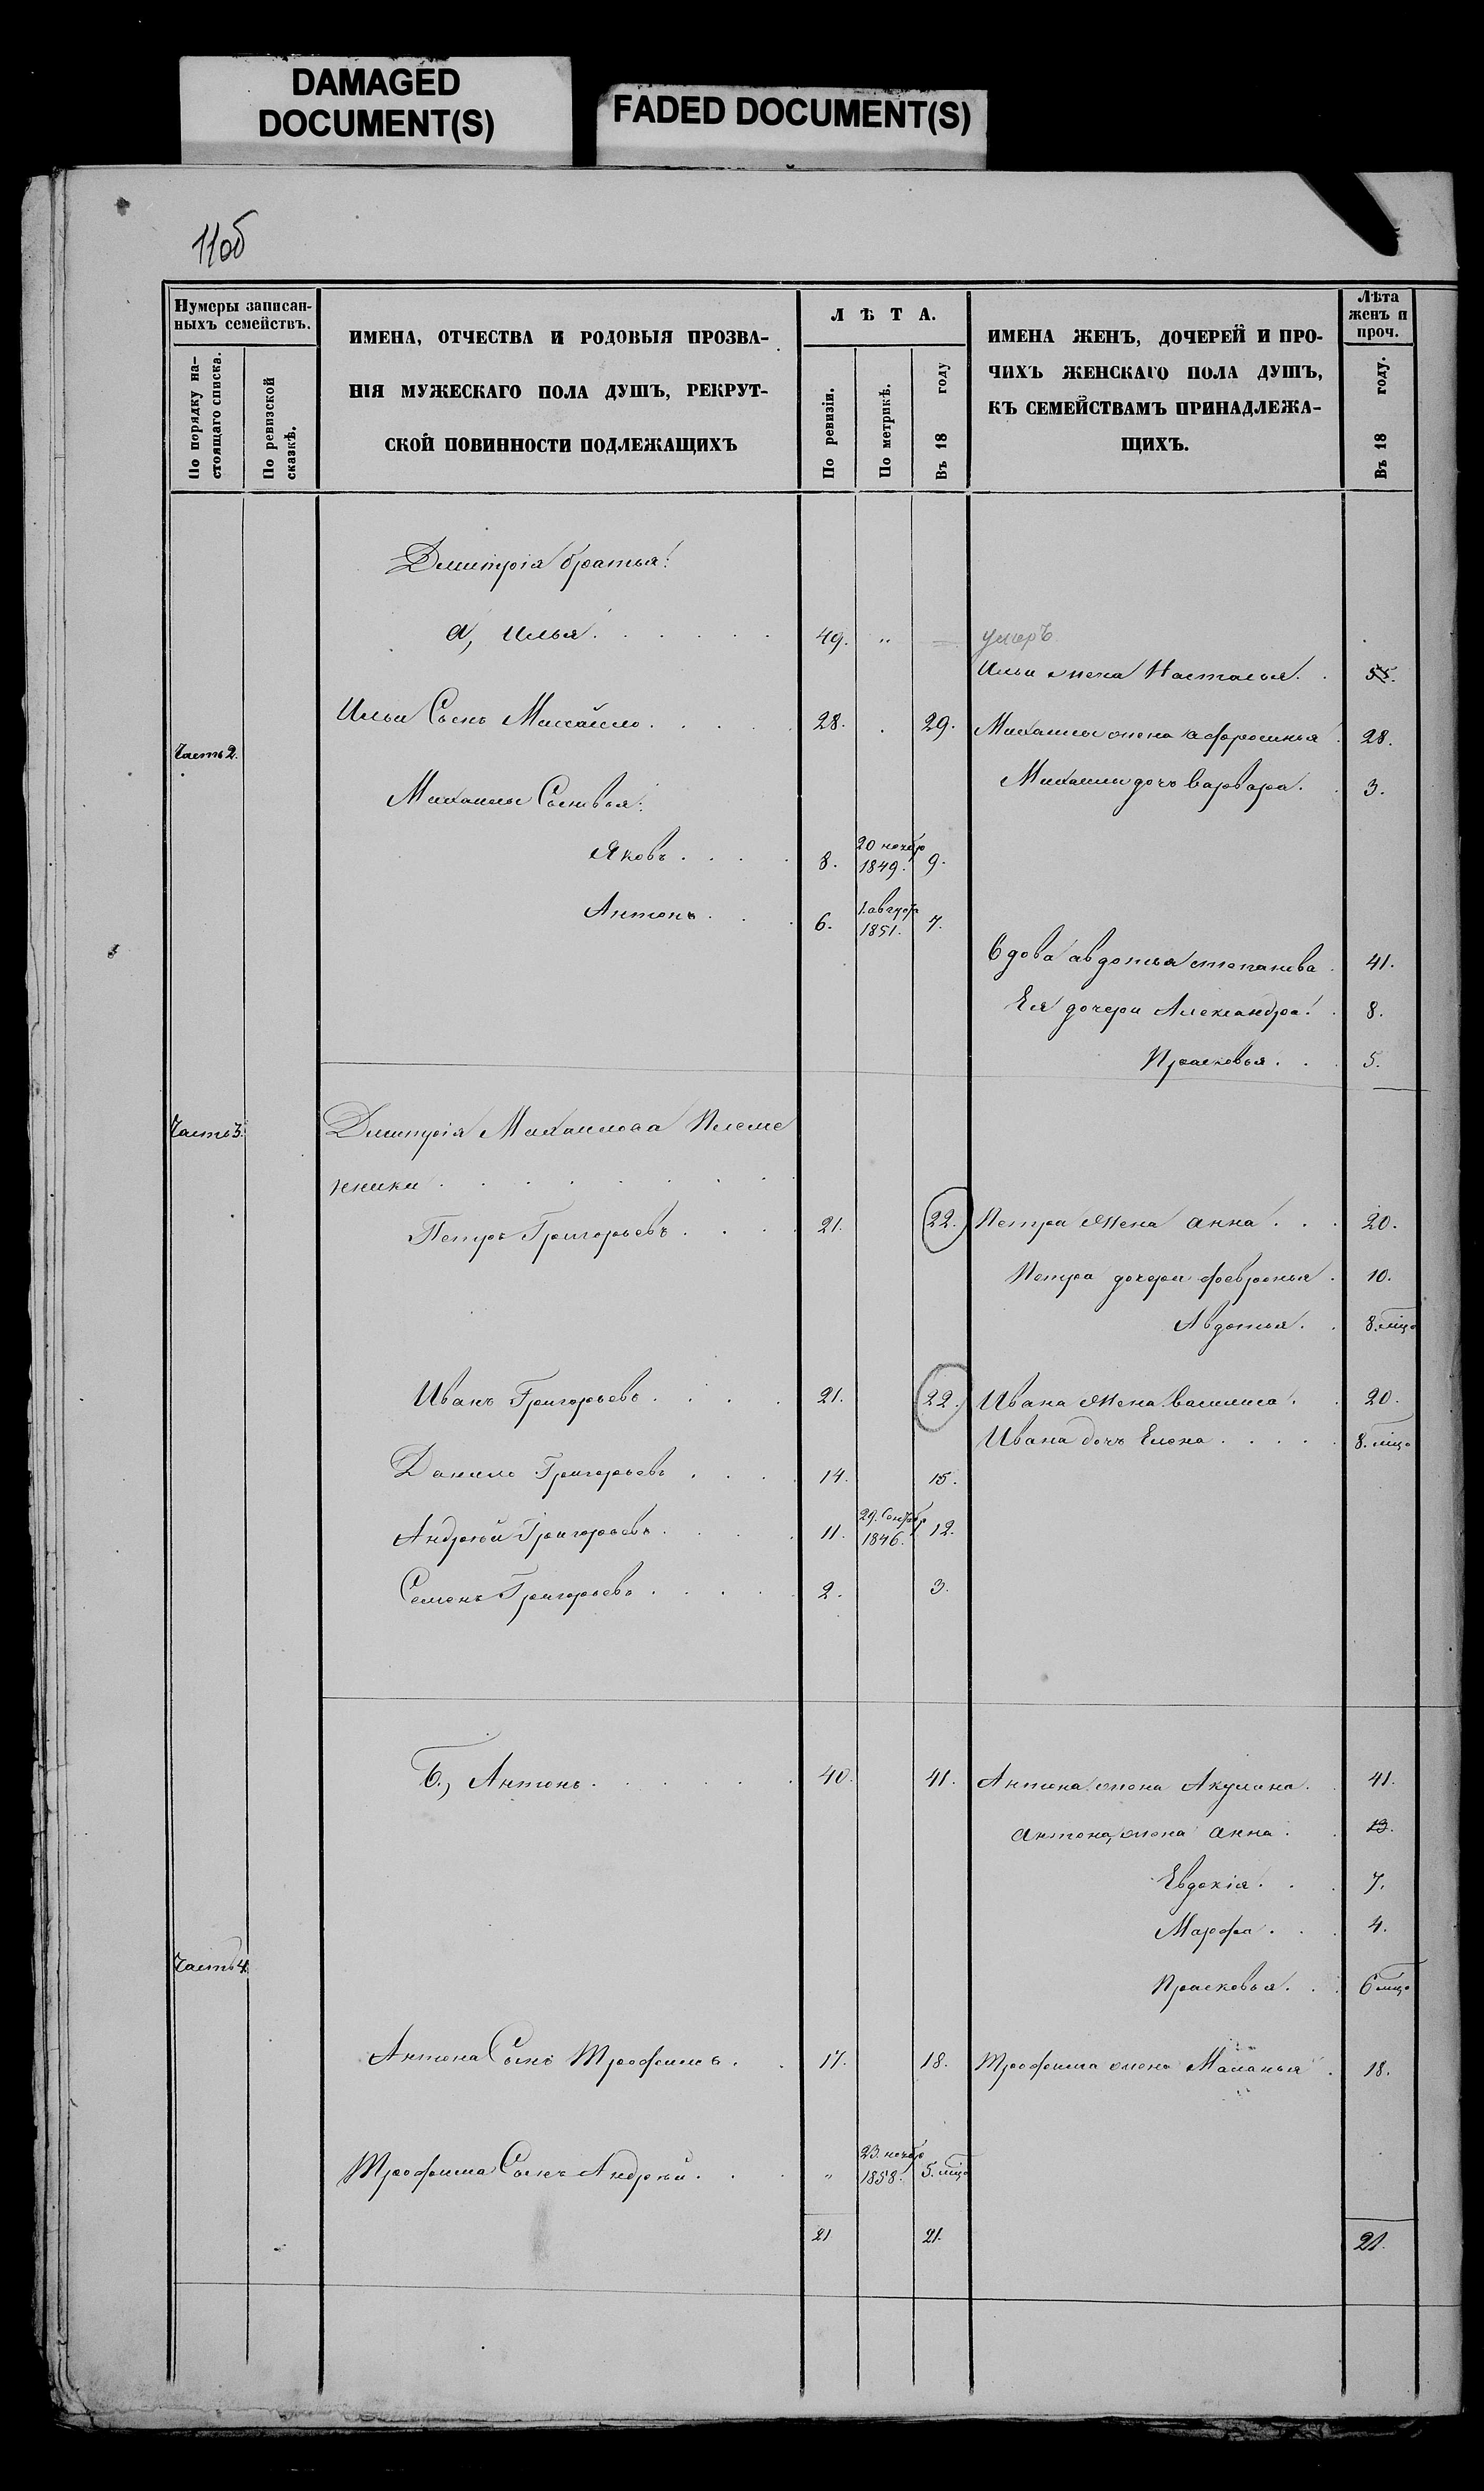 DAMAGED
DOCUMENT(S)
FADED DOCUMENT(S)
11об
Нумеры записан-
ныхъ семействъ.
По порядку на-
стоящаго списка.
По ревизской
сказкѣ.
ИМЕНА, ОТЧЕСТВА И РОДОВЫЯ ПРОЗВА-
НІЯ МУЖЕСКАГО ПОЛА ДУШЪ, РЕКРУТ-
СКОЙ ПОВИННОСТИ ПОДЛЕЖАЩИХЪ
ЛѢТА.
По ревизіи.
По метрикѣ.
Въ 18 году
ИМЕНА ЖЕНЪ, ДОЧЕРЕЙ И ПРО-
ЧИХЪ ЖЕНСКАГО ПОЛА ДУШЪ,
КЪ СЕМЕЙСТВАМЪ ПРИНАДЛЕЖА-
ЩИХЪ.
Лѣта
женъ и
проч.
Въ 18 году.
Дмитрія братья:
а, Илья . . . . . . 49. " — умеръ
Ильи жена Настасья . . 55.
Ильи Сынъ Михайло . . . . 28. . 29. Михаилы жена Афросинья . 28.
Часть 2.
Михаилы дочь Варвара . . 3.
Михаилы Сыновья:
Яковъ . . . . 8. 20 ноябр 1849. 9.
Антонъ . . . 6. 1. августа 1851. 7.
Вдова авдотья степанова . 41.
Ея дочери Александра . . 8.
Прасковья . . . 5.
Часть 3.
Дмитрія Михаилова Племе
нники . . . . . . . .
Петръ Григорьевъ . . . . 21. 22. Петра Жена Анна . . . 20.
Петра дочери Февронья . 10.
Авдотья . . 8. мцо
Иванъ Григорьевъ . . . . 21. 22. Ивана Жена Василиса . . 20.
Ивана дочь Елена . . . . . 8. мцо
Данило Григорьевъ . . . 14. 15.
Андрей Григорьевъ . . . . 11. 29. Сентябр 1846. 12.
Семенъ Григорьевъ . . . . . 2. 3.
Б., Антонъ . . . . . . 40. 41. Антона жена Акулина . . 41.
Антона жена Анна . . 13.
Евдокія . . . 7.
Марфа . . . 4.
Часть 4.
Прасковья . . . 6 мцо
Антона Сынъ Трофимъ . . 17. 18. Трофима жена Маланья . 18.
Трофима Сынъ Андрей . . . " 23. ноябр 1858. 5. мцо
21 21. 21.